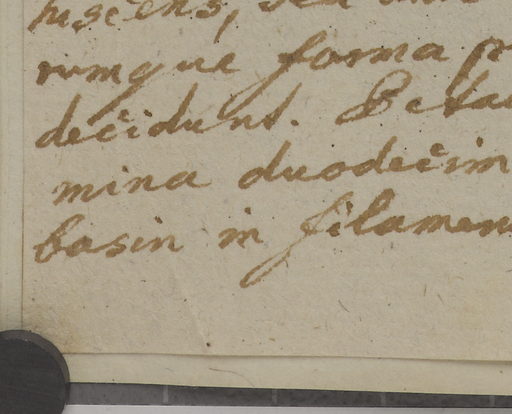 rumque forma
decidunt. Peta
mina duodecim
basin in filamen